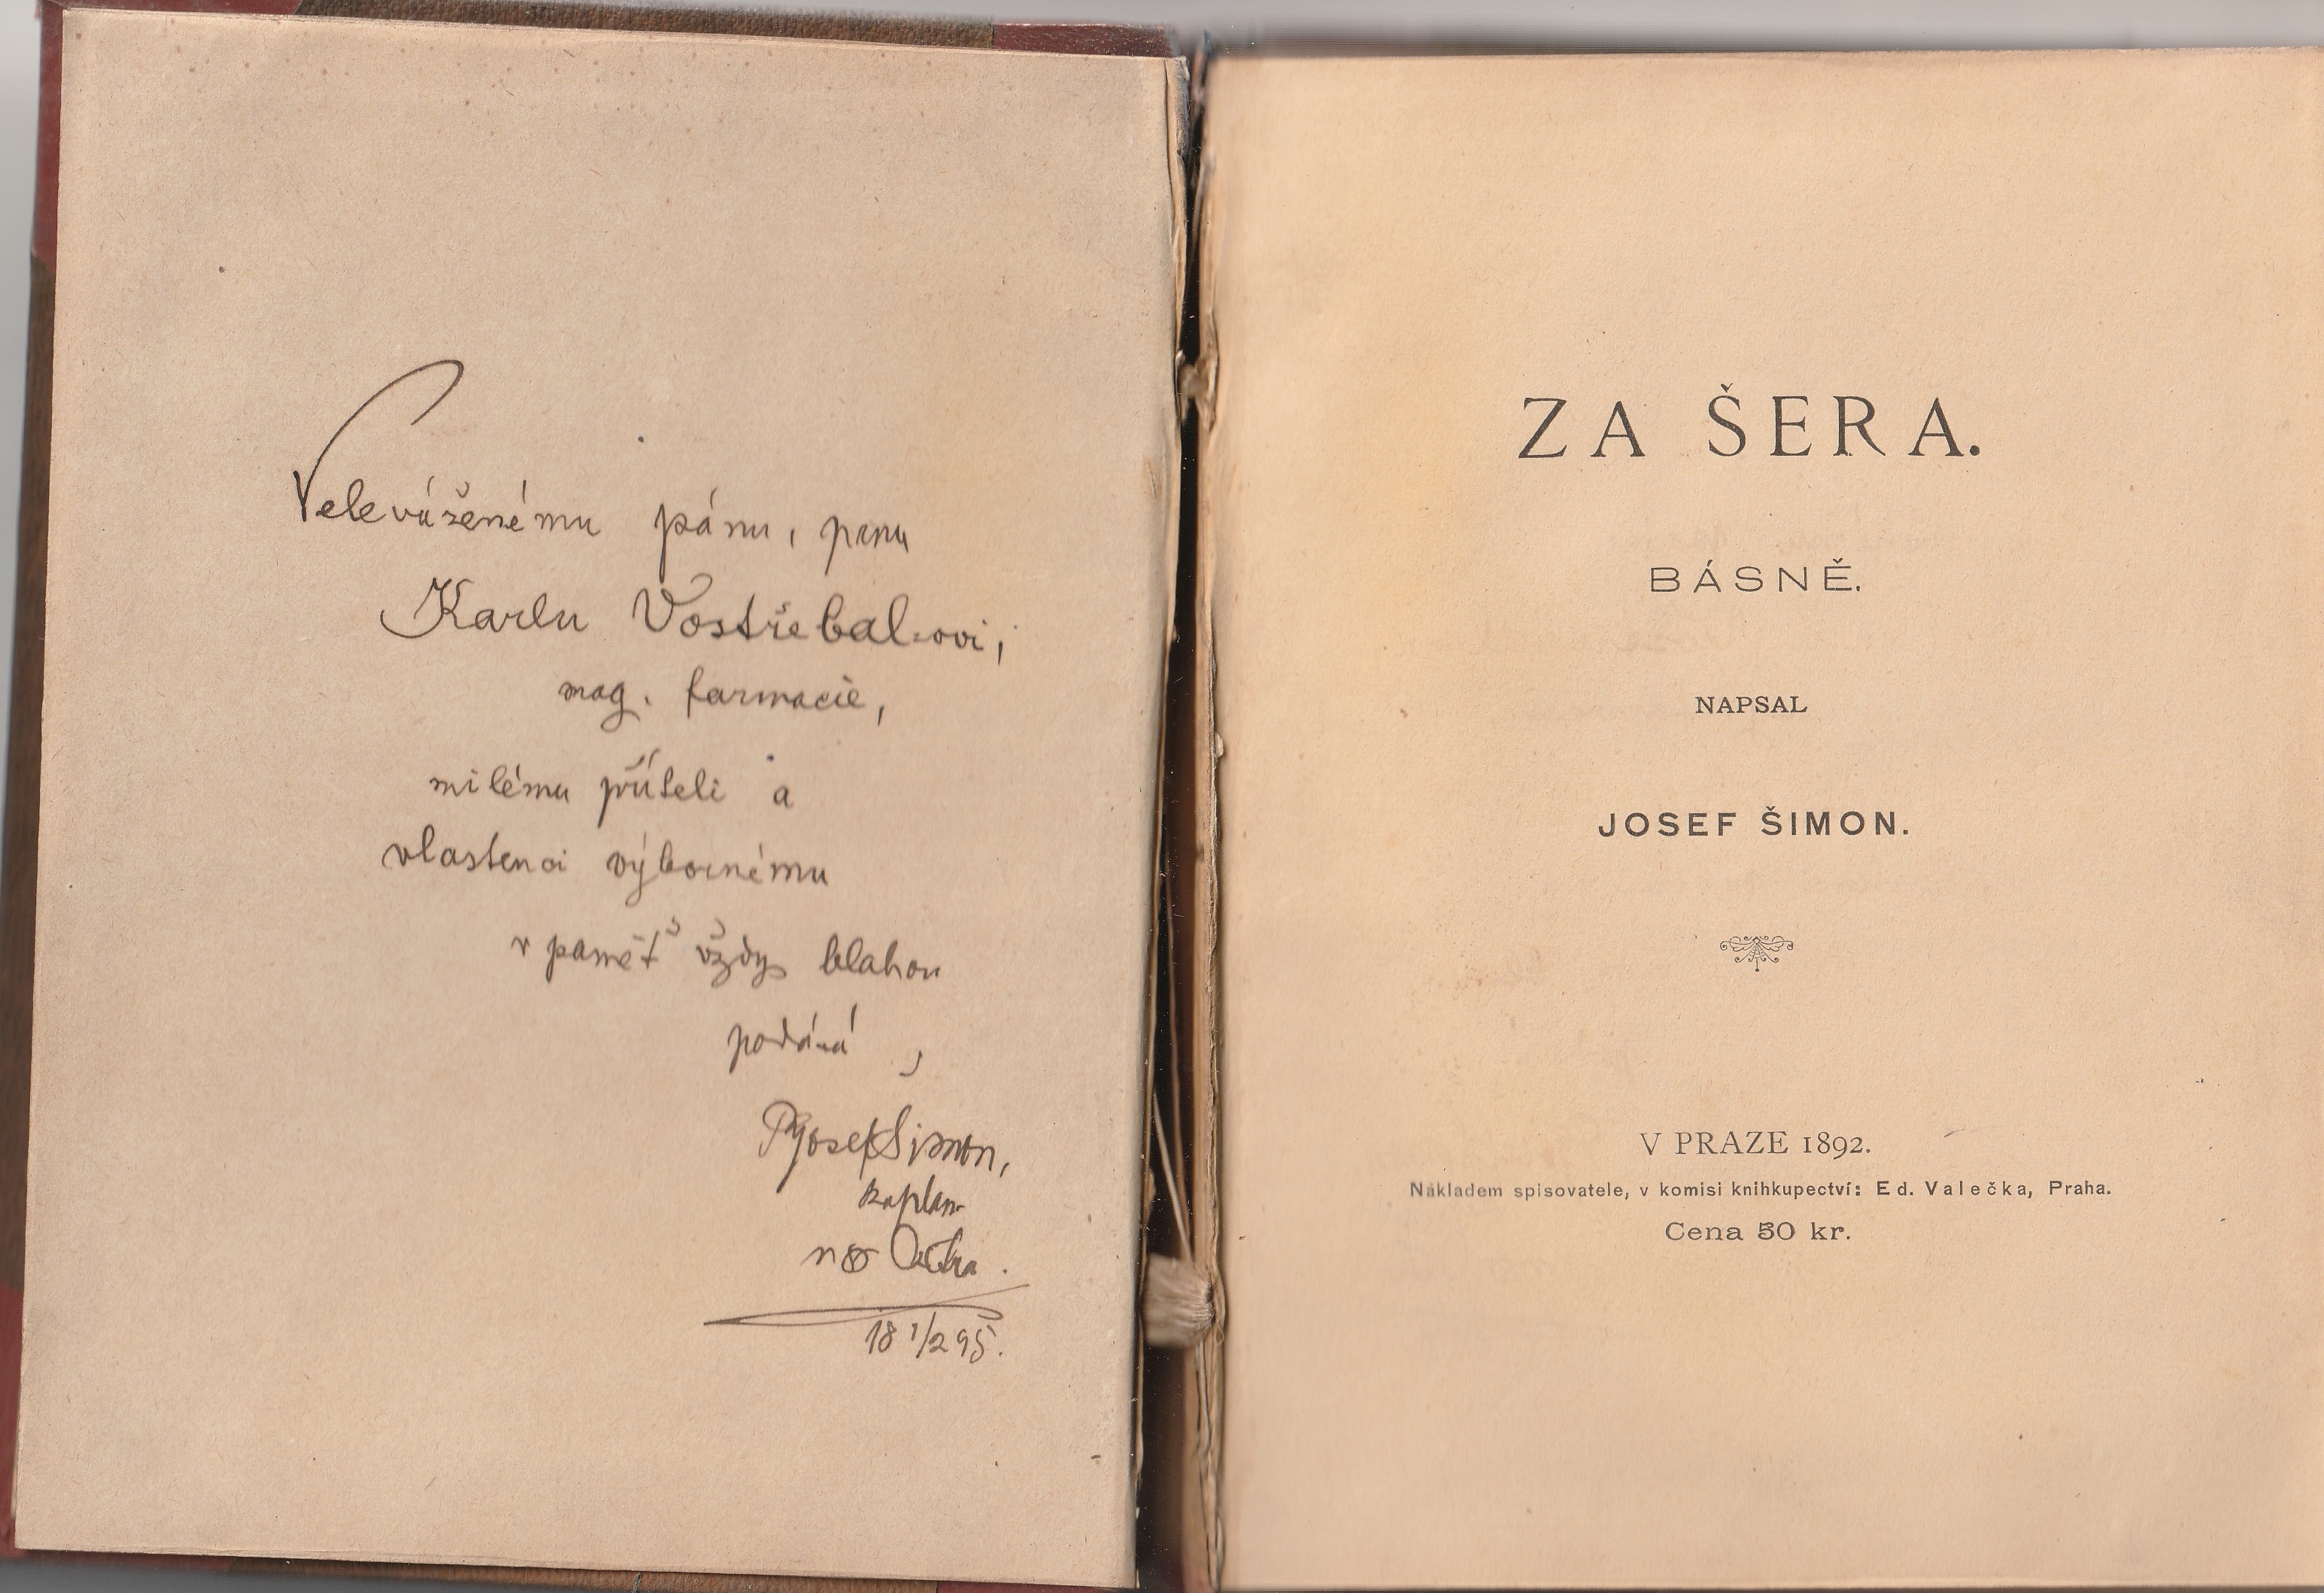 Velevaženému pánu, panu
Karlu Vostřebal-ovi,
mag. farmacie,
milému příteli a
vlastenci výbornému
v paměť vždy blahou
podává,
P. Josef Šimon,
kaplan
18 1/2 95.
ZA ŠERA.
BÁSNĚ.
NAPSAL
JOSEF ŠIMON.
V PRAZE 1892.
Nákladem spisovatele, v komisi knihkupectví: Ed. Valečka, Praha.
Cena 50 kr.